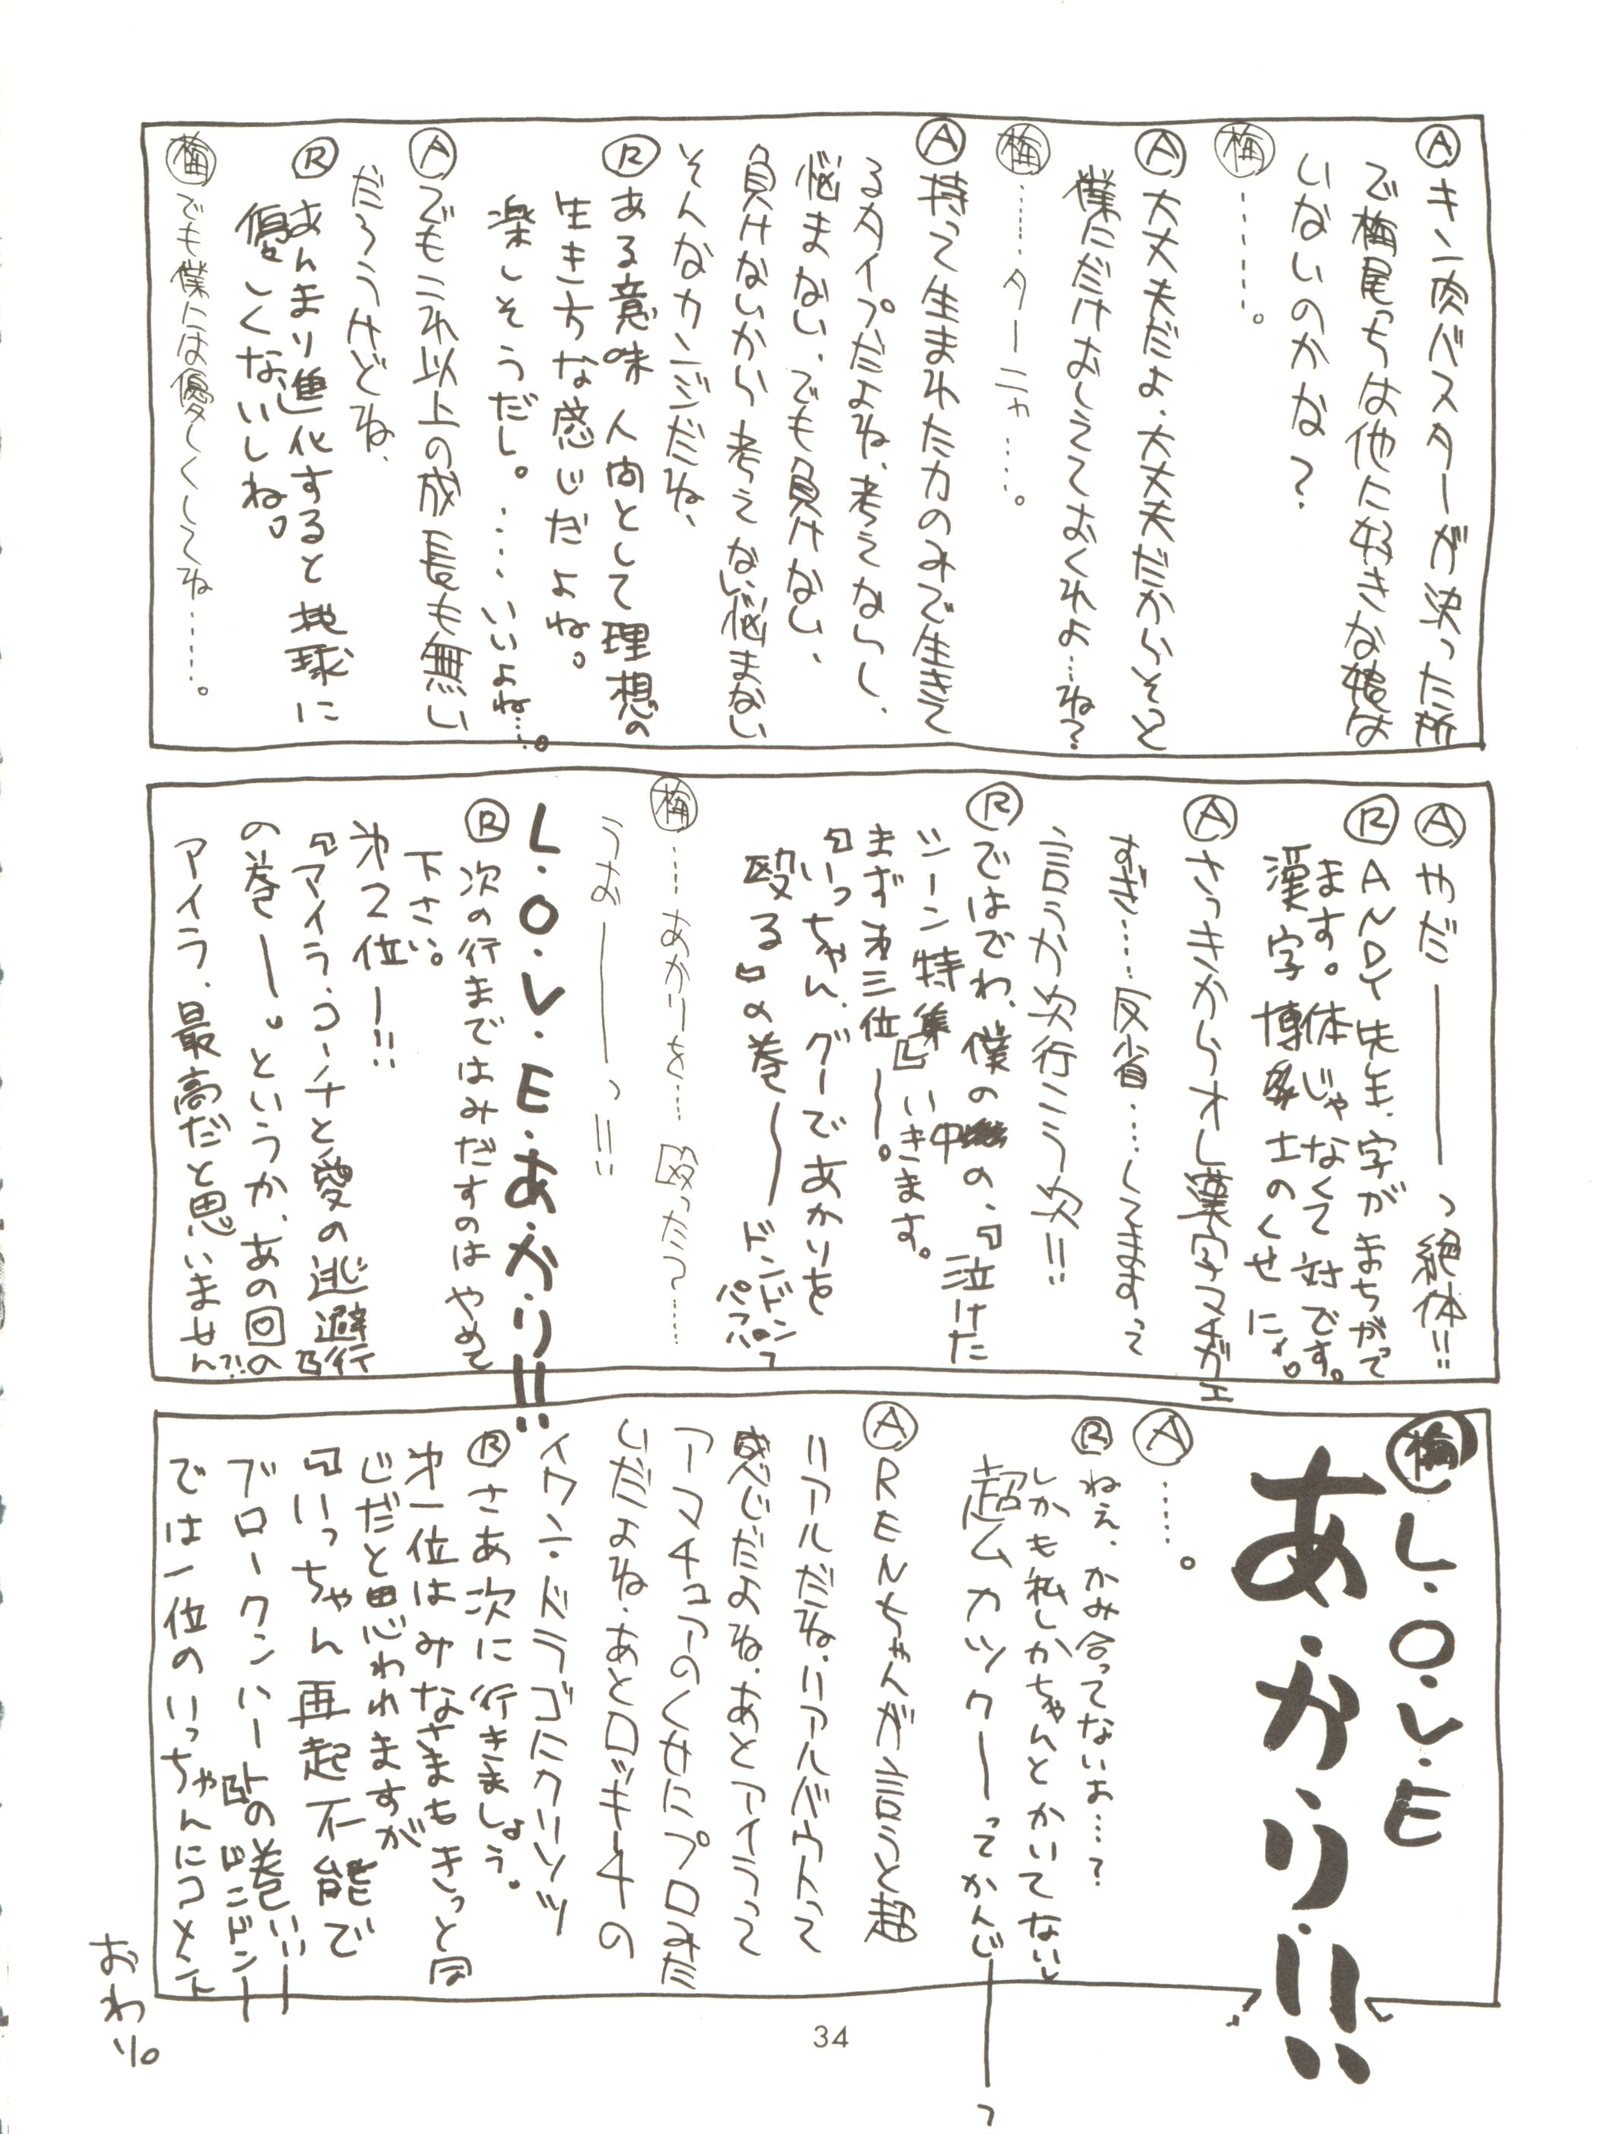 Ⓐキン肉バスターが決った所
で梅尾っちは他に好きな娘は
いないのかな?
㊞梅……。
Ⓐ大丈夫だよ、大丈夫だからそっと
僕にだけおしえておくれよ…ね?
梅……ターニャ……。
Ⓐ持って生まれた力のみで生きて
るタイプだよね、考えてないし、
悩まない、でも負けない、
負けないから考えない、悩まない
そんなカンジだね、
Ⓡある意味 人間として理想の
生き方な感じだよね。
楽しそうだし。……いいよね…。
Ⓐでもこれ以上の成長も無い
だろうけどね、
Ⓡあんまり進化すると地球に
優しくないしね。
梅でも僕には優しくしてね……。
Ⓐやだ――――っ絶体!!
ⓇANDY先生、字がまちがって
ます。体じゃなくて対です。
漢字博士のくせに。
Ⓐさっきからオレ漢字マチガエ
すぎ……反省……してますって
言うか次行こう次!!
Ⓡではでわ、僕の中の、『泣けた
シーン特集』いきます。
まず第三位〜。
『いっちゃん、グーであかりを
殴る』の巻〜〜 ドンドンパフパフっ
梅……あかりを……殴った〜……
うお―――っ!!
L・O・V・E・あ・か・り!!
Ⓡ次の行まではみだすのはやめて
下さい。
第2位ー!!
『アイラ、コーチと愛の逃避行』
の巻ー。というか、あの回の
アイラ、最高だと思いません?!
梅L・O・V・E
あ・か・り・!!
Ⓐ……。
Ⓡねえ、かみ合ってないよ…?
しかも私しかちゃんとかいてないし
超ムカツクーってかんじ――っ
ⒶRENちゃんが言うと超
リアルだね、リアルバウトって
感じだよね、あとアイラって
アマチュアのくせにプロみた
いだよね、あとロッキー4の
イワン・ドラゴにクリソツ
Ⓡさあ次に行きましょう。
第一位はみなさまもきっと同
じだと思われますが
『いっちゃん再起不能で
ブロークンハート』の巻いい――
ドンドン――
では一位のいっちゃんにコメント
おわり。
34